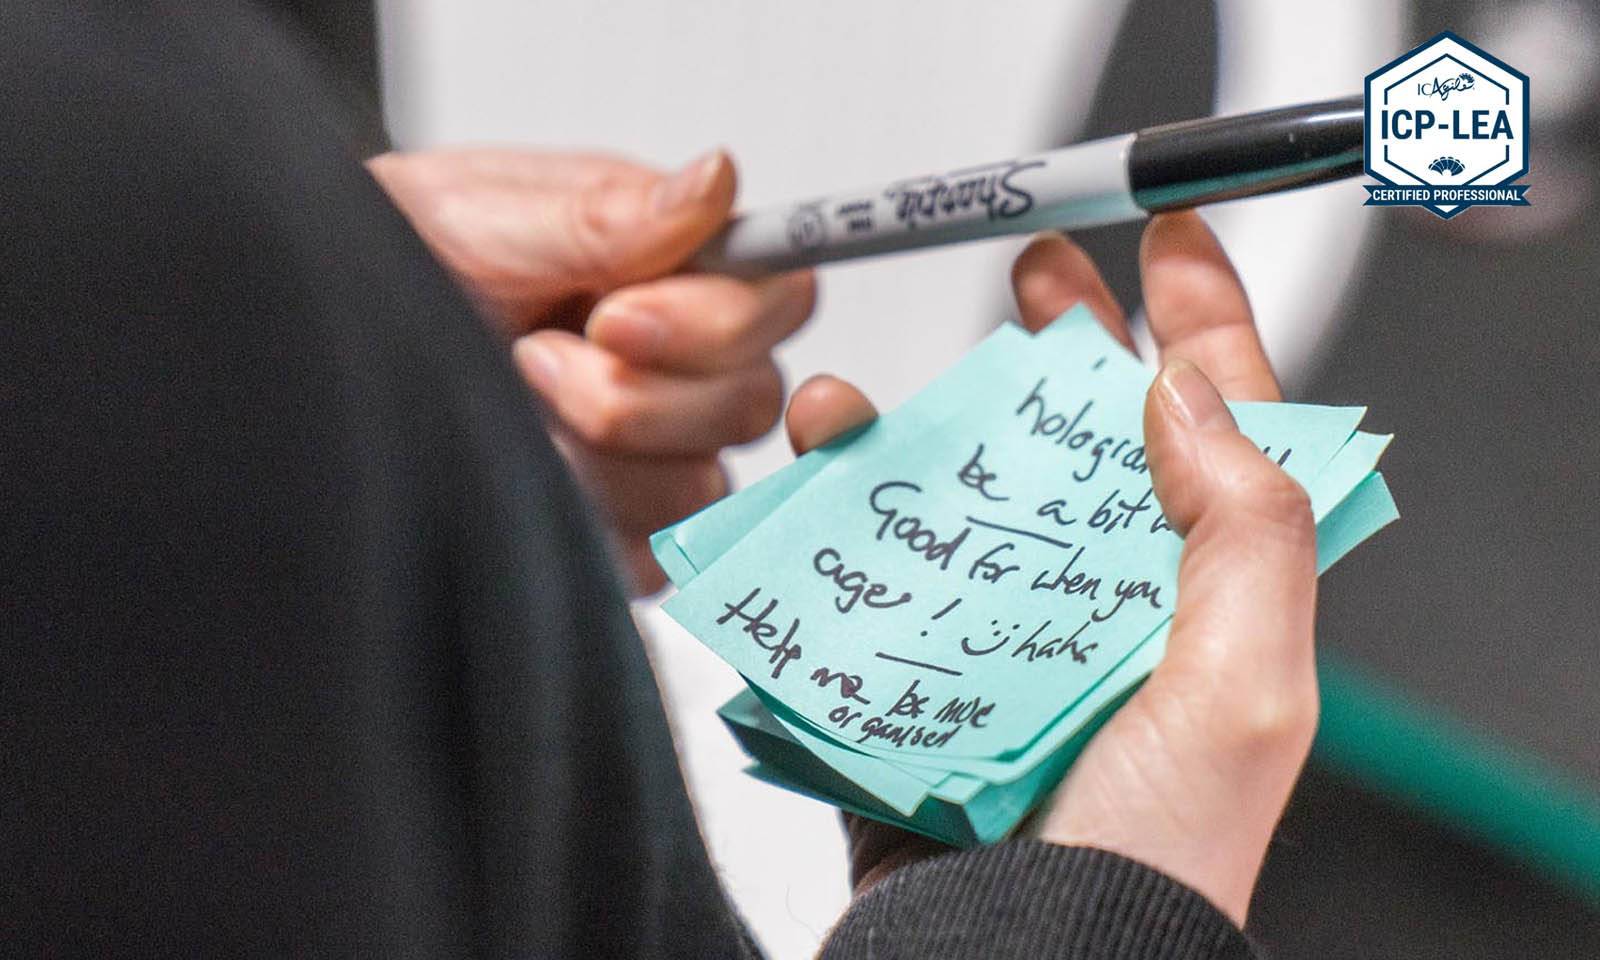 ICAgile
ICP-LEA
CERTIFIED PROFESSIONAL
Sharpie
hologra
be a bit
Good for when you
age! :) haha
Help me be more
organised